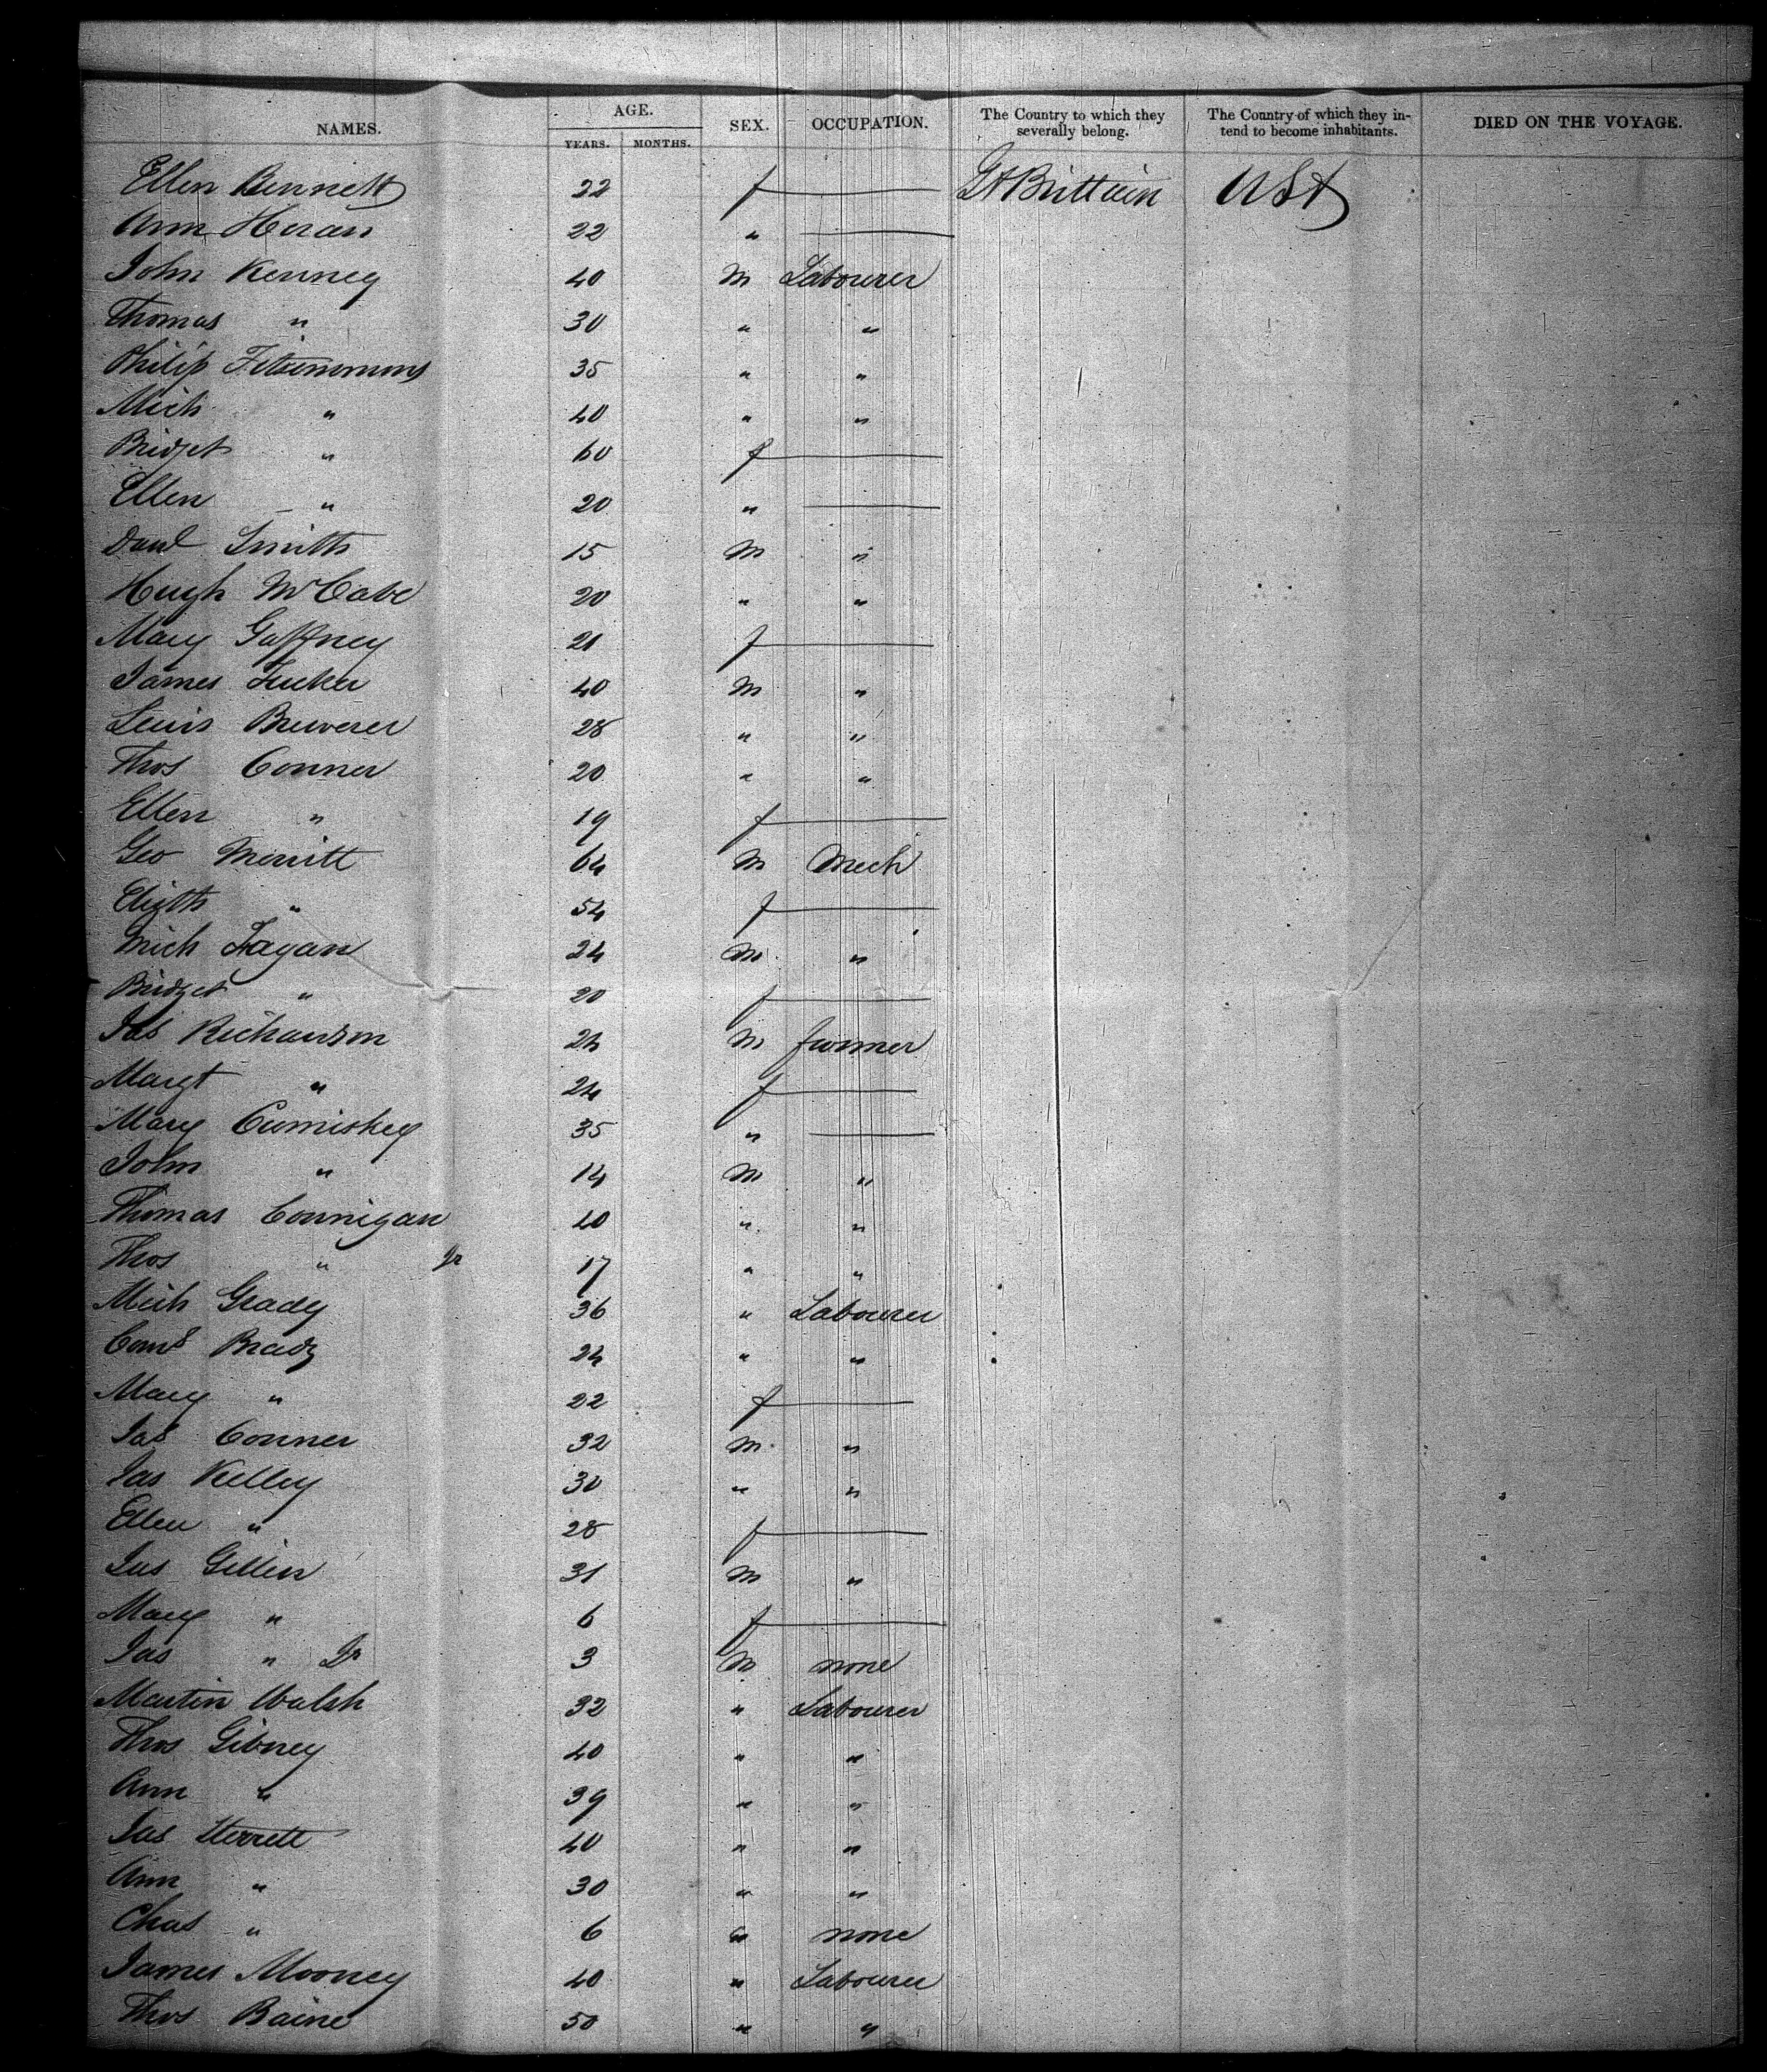 NAMES. AGE. SEX. OCCUPATION. The Country to which they severally belong. The Country of which they intend to become inhabitants. DIED ON THE VOYAGE.
YEARS. MONTHS.
Ellen Bennett 22 f Gt Brittain USA
Ann Heran 22 "
John Kenney 40 M Labourer
Thomas " 30 " "
Philip Fitzsimmons 35 " "
Mich " 40 " "
Bridget " 60 f
Ellen " 20 "
Danl Smith 15 M "
Hugh McCabe 20 " "
Mary Gaffney 21 f
James Tucker 40 M "
Lewis Brewerer 28 " "
Thos Conner 20 " "
Ellen " 19 f
Geo Merritt 64 M Mech
Elizth " 54 f
Mich Fagan 24 M "
Bridget " 20 f
Jas Richarson 24 M farmer
Margt " 24 f
Mary Cumiskey 35 "
John " 14 M "
Thomas Connigan 40 " "
Thos " Jr 17 " "
Mich Grady 36 " Labourer
Brady 24 " "
Mary " 22 f
Jas Conner 32 M "
Jas Kelley 30 " "
Ellen " 28 f
Jas Gillin 31 M "
Mary " 6 f
Jas " Jr 3 M none
Martin Walsh 32 " Labourer
Thos Gibney 40 " "
Ann " 39 " "
Jas Sterrett 40 " "
Ann " 30 " "
Chas " 6 " none
James Mooney 40 " Labourer
Thos Baine 50 " "